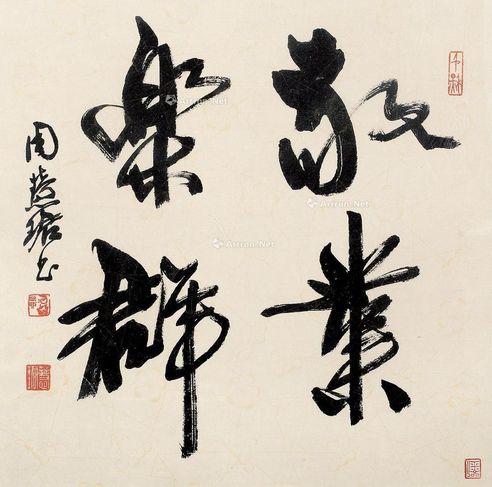 敬業
樂群
周慧珺书
Artron.Net
Artron.Net
Artron.Net